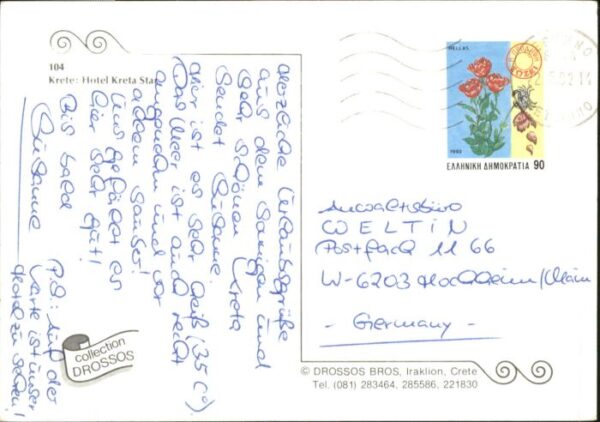 104
Krete: Hotel Kreta Star
Herzliche Urlaubsgrüße
aus dem sonnigen und
sehr schönen Kreta
sendet Susanne.
Hier ist es sehr heiß (35 C°).
Das Meer ist auch recht
angenehm und vor
allem sauber!
Uns gefällt es
hier sehr gut!
Bis bald
Susanne
P.S.: Auf der
Karte ist unser
Hotel zu sehen!
collection
DROSSOS
HELLAS
1992
ΕΛΛΗΝΙΚΗ ΔΗΜΟΚΡΑΤΙΑ 90
Anwaltsbüro
WELTIN
Postfach 11 66
W-6203 Hochheim/Main
- Germany -
© DROSSOS BROS, Iraklion, Crete
Tel. (081) 283464, 285586, 221830